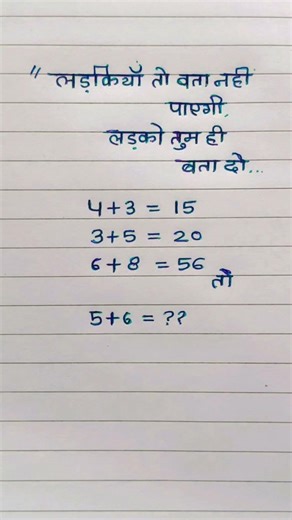 " लड़कियाँ तो बता नहीं
पाएगी,
लड़को तुम ही
बता दो...
4+3 = 15
3+5 = 20
6+8 = 56
तो
5+6 = ??